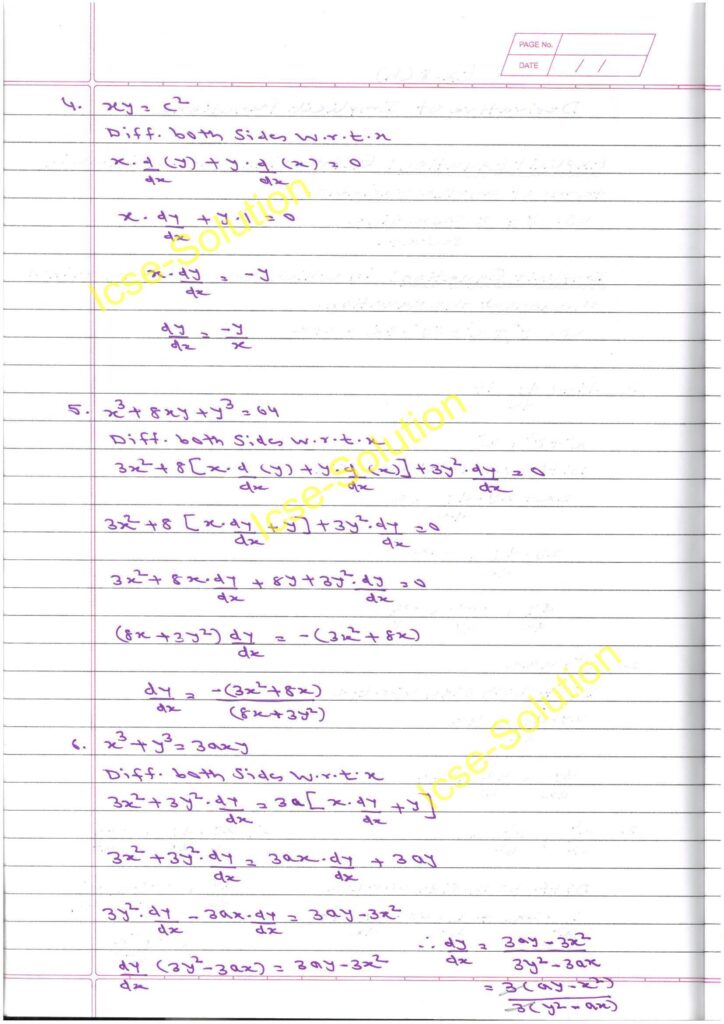 PAGE No.
DATE / /
4. xy = c²
Diff. both Sides w.r.t. x
x · d/dx (y) + y · d/dx (x) = 0
x · dy/dx + y · 1 = 0
x · dy/dx = -y
dy/dx = -y/x
5. x³ + 8xy + y³ = 64
Diff. both Sides w.r.t. x
3x² + 8[x · d/dx (y) + y · d/dx (x)] + 3y² · dy/dx = 0
3x² + 8 [x · dy/dx + y] + 3y² · dy/dx = 0
3x² + 8x · dy/dx + 8y + 3y² · dy/dx = 0
(8x + 3y²) dy/dx = -(3x² + 8x)
dy/dx = -(3x² + 8x)/(8x + 3y²)
6. x³ + y³ = 3axy
Diff. both Sides w.r.t. x
3x² + 3y² · dy/dx = 3a[x · dy/dx + y]
3x² + 3y² · dy/dx = 3ax · dy/dx + 3ay
3y² · dy/dx - 3ax · dy/dx = 3ay - 3x²
dy/dx (3y² - 3ax) = 3ay - 3x²
∴ dy/dx = (3ay - 3x²)/(3y² - 3ax)
= 3(ay - x²)/3(y² - ax)
Icse-Solution
Icse-Solution
Icse-Solution